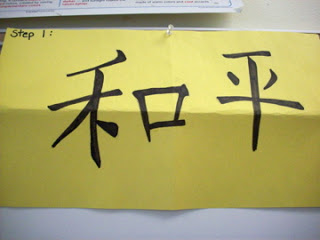 Step 1:
和平